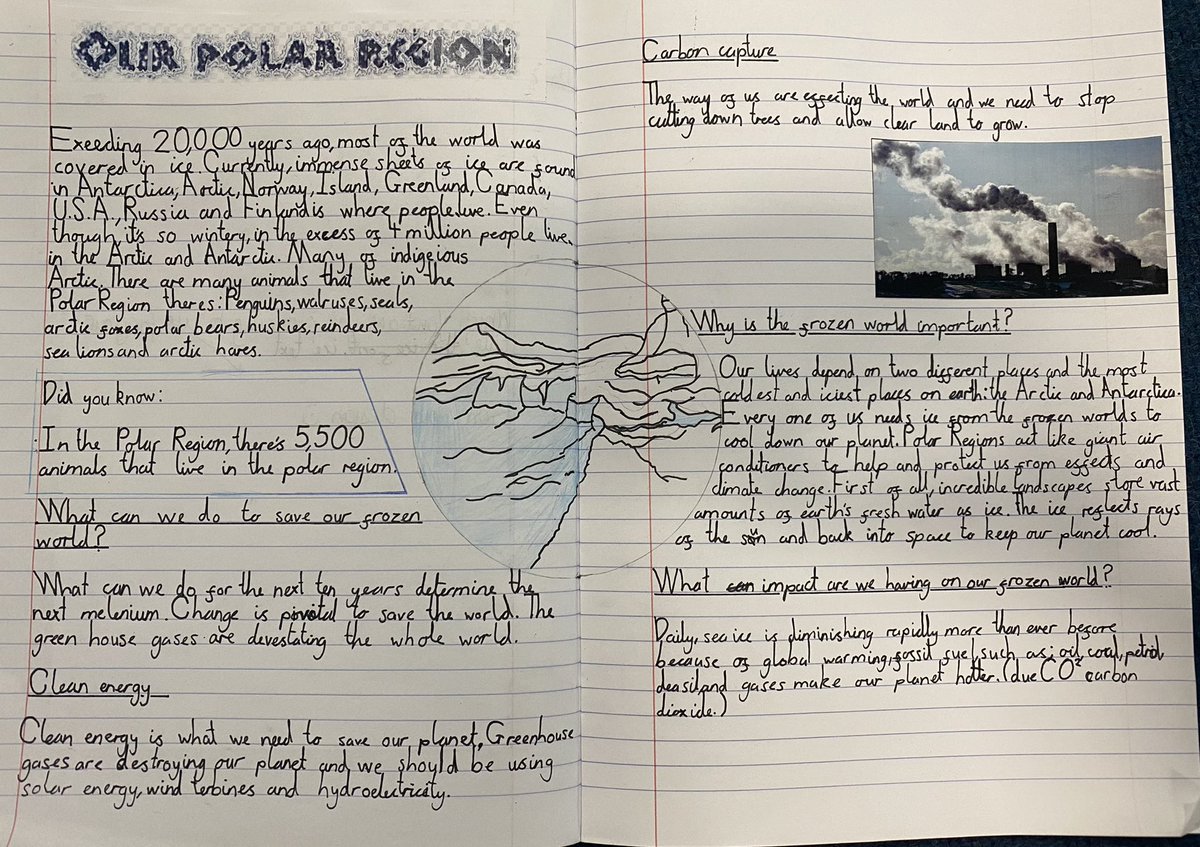 OUR POLAR REGION
Exeeding 20,000 years ago, most of the world was
covered in ice. Currently, immense sheets of ice are found
in Antarctica, Arctic, Norway, Island, Greenland, Canada,
U.S.A., Russia and Finland is where people live. Even
though, it's so wintery, in the excess of 4 million people live
in the Arctic and Antarctic. Many of indigeious
Arctic. There are many animals that live in the
Polar Region theres: Penguins, walruses, seals,
arctic foxes, polar bears, huskies, reindeers,
sea lions and arctic hares.
Did you know:
In the Polar Region, there's 5,500
animals that live in the polar region.
What can we do to save our frozen
world?
What can we do for the next ten years determine the
next melenium. Change is pivotal to save the world. The
green house gases are devestating the whole world.
Clean energy
Clean energy is what we need to save our planet, Greenhouse
gases are destroying our planet and we should be using
solar energy, wind terbines and hydroelectricity.
Carbon capture
The way of us are effecting the world and we need to stop
cutting down trees and allow clear land to grow.
Why is the frozen world important?
Our lives depend on two different places and the most
coldest and iciest places on earth: the Arctic and Antarctica.
Every one of us needs ice from the frozen worlds to
cool down our planet. Polar Regions act like giant air
conditioners to help and protect us from effects and
climate change. First of all, incredible landscapes store vast
amounts of earth's fresh water as ice. The ice reflects rays
of the sun and back into space to keep our planet cool.
What can impact are we having on our frozen world?
Daily, sea ice is diminishing rapidly more than ever before
because of global warming, fossil fuel, such as; oil, coal, petrol,
deasil, and gases make our planet hotter. (due CO² carbon
dioxide.)